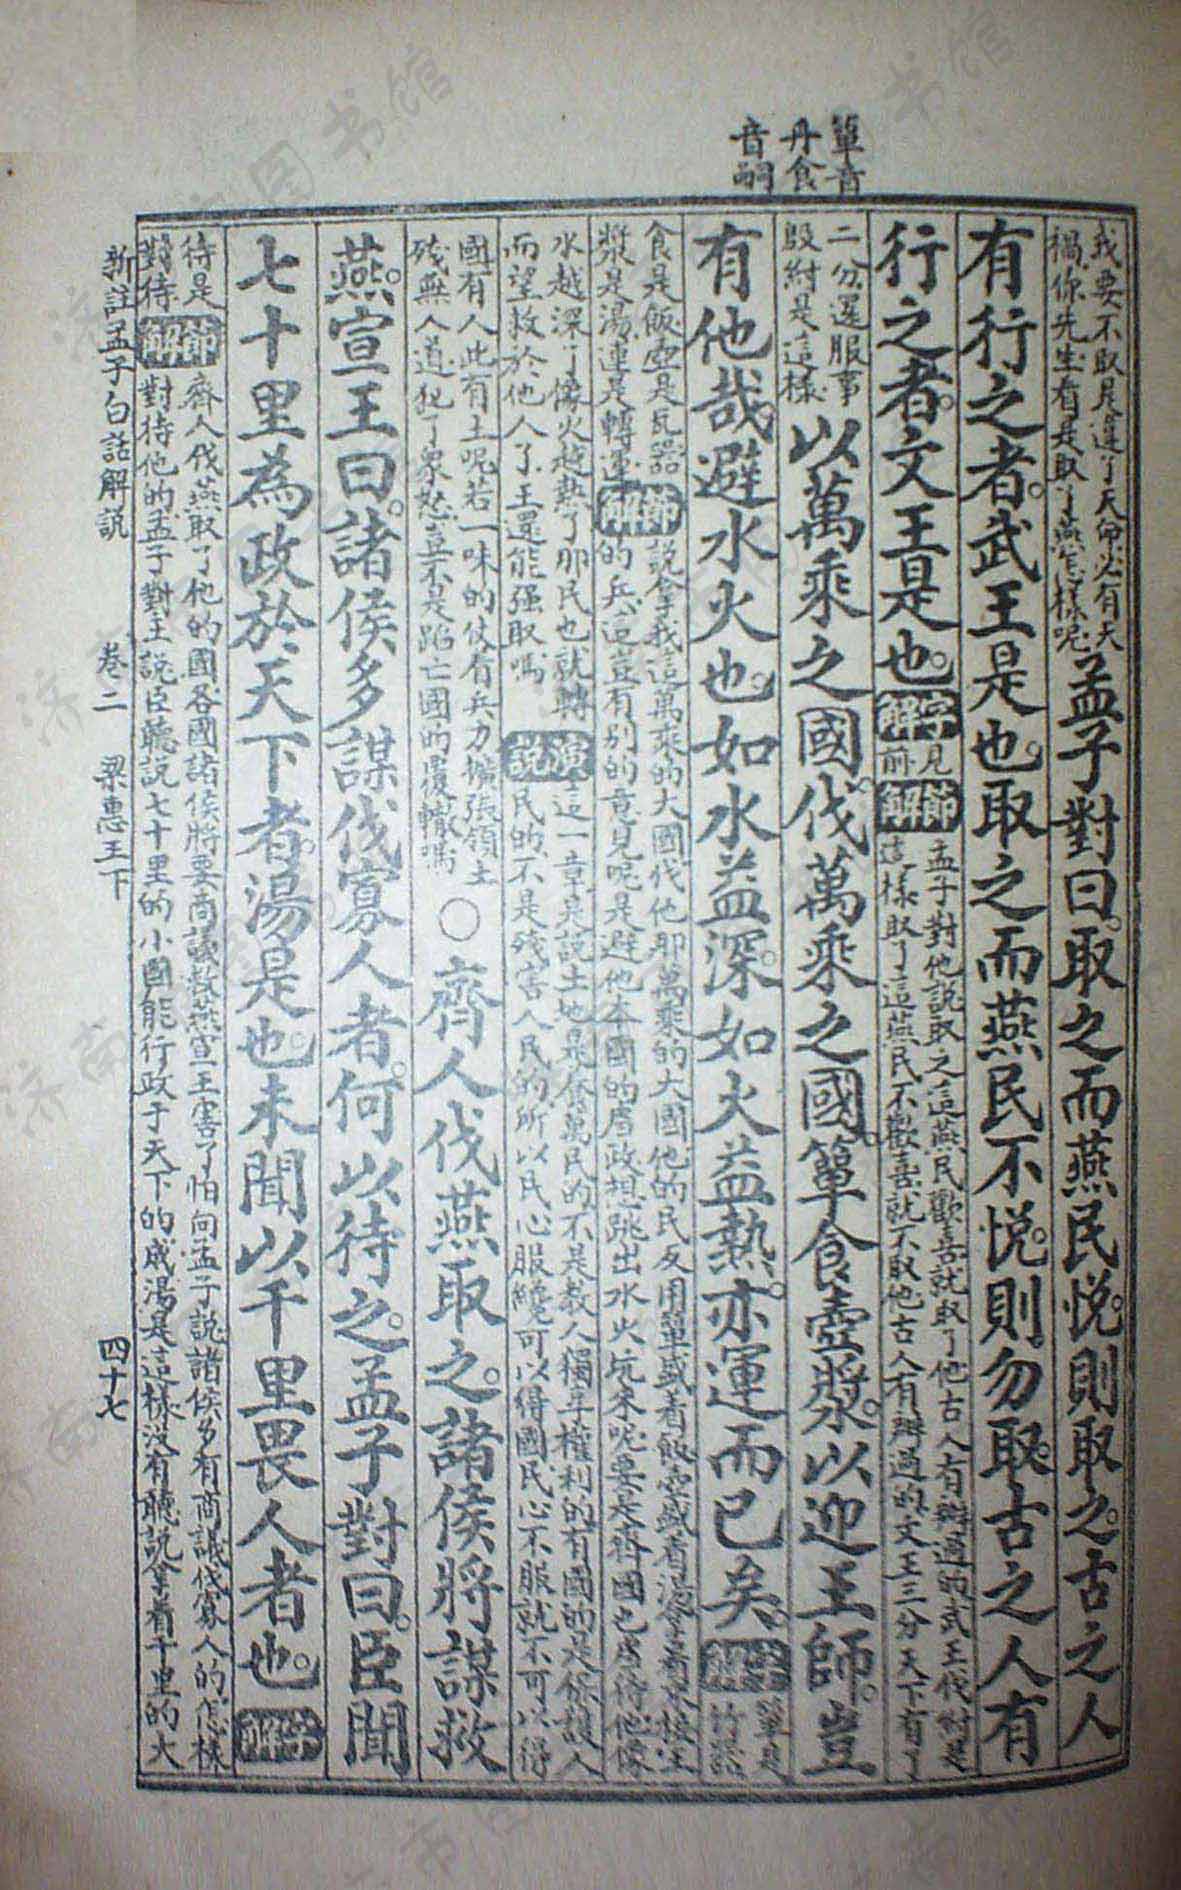 簞音
丹食
音嗣
我要不取是違了天命必有天
禍你先生看是取了燕怎樣呢
孟子對曰取之而燕民悅則取之古之人
有行之者武王是也取之而燕民不悅則勿取古之人有
行之者文王是也
字解
見
前
節解
孟子對他說取之這燕民歡喜就取了他古人有辦過的武王伐紂是
這樣取了這燕民不歡喜就不取他古人有辦過的文王三分天下有了
二分還服事
殷紂是這樣
以萬乘之國伐萬乘之國簞食壺漿以迎王師豈
有他哉避水火也如水益深如火益熱亦運而已矣
字解
簞是
竹器
食是飯壺是瓦器
漿是湯運是轉運
節解
說拿我這萬乘的大國伐他那萬乘的大國他的民反用簞盛着飯壺盛着湯拿着來接王
的兵這豈有別的意見呢是避他本國的虐政想跳出水火坑來呢要是齊國也虐待他像
水越深了像火越熱了那民也就轉
而望救於他人了王還能强取嗎
演說
這一章是說土地是養萬民的不是教人獨享權利的有國的是保護人
民的不是殘害人民的所以民心服纔可以得國民心不服就不可以得
國有人此有土呢若一味的仗着兵力擴張領土
殘無人道犯了衆怒豈不是蹈亡國的覆轍嗎
○齊人伐燕取之諸侯將謀救
燕宣王曰諸侯多謀伐寡人者何以待之孟子對曰臣聞
七十里為政於天下者湯是也未聞以千里畏人者也
字解
待是
對待
節解
齊人伐燕取了他的國各國諸侯將要商議救燕宣王害了怕向孟子說諸侯多有商議伐寡人的怎樣
對待他的孟子對王說臣聽說七十里的小國能行政于天下的成湯是這樣沒有聽說拿着千里的大
新註孟子白話解説
卷二
梁惠王下
四十七